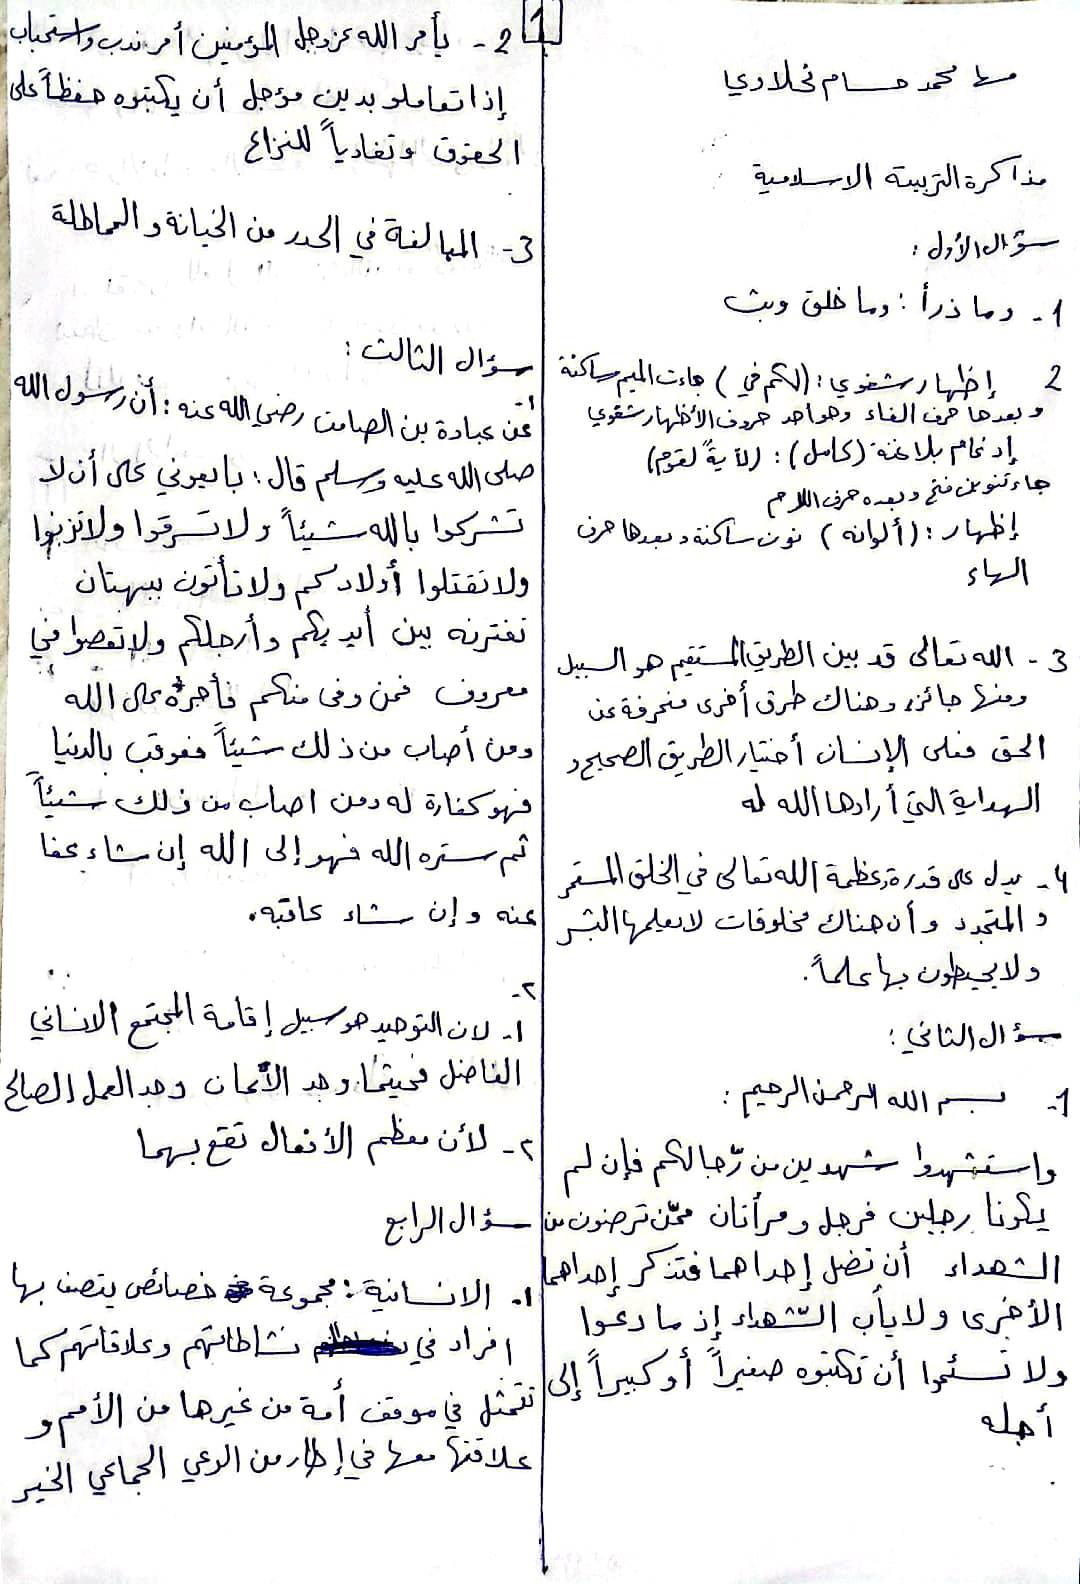 1
مها محمد حسام نحلاوي
مذاكرة التربية الاسلامية
سؤال الأول :
1- وما ذرأ : وما خلق وبث
2 إظهار شفوي : (لكم في) جاءت الميم ساكنة
وبعدها حرف الفاء وهو احد حروف الأظهار شفوي
إدغام بلا غنة (كامل) : (لآيةً لقوم)
جاء تنوين فتح وبعده حرف اللام
إظهار : (ألوانه) نون ساكنة وبعدها حرف
الهاء
3- الله تعالى قد بين الطريق المستقيم هو السبيل
ومنها جائز، وهناك طرق أخرى منحرفة عن
الحق فعلى الإنسان أختيار الطريق الصحيح و
الهداية التي أرادها الله له
4- يدل على قدرة وعظمة الله تعالى في الخلق المستمر
و المتجدد وأن هناك مخلوقات لا يعلمها البشر
ولا يحيطون بها علماً.
سؤال الثاني :
1- بسم الله الرحمن الرحيم :
واستشهدوا شهدين من رّجالكم فإن لم
يكونا رجلين فرجل ومرأتان ممّن ترضون من
الشهداء أن تضل إحداهما فتذكر إحداهما
الأخرى ولا يأب الشّهداء إذ ما دعوا
ولا تسئموا أن تكتبوه صغيراً أو كبيراً إلى
أجله
2- يأمر الله عز وجل المؤمنين أمر ندب واستحباب
إذا تعاملو بدين مؤجل أن يكتبوه حفظاً على
الحقوق وتفادياً للنزاع
3- المبالغة في الحدر من الخيانة والمماطلة
سؤال الثالث :
1-
عن عبادة بن الصامت رضي الله عنه : أن رسول الله
صلى الله عليه وسلم قال : بايعوني على أن لا
تشركوا بالله شيئاً ولا تسرقوا ولا تزنوا
ولا تقتلوا أولادكم ولا تأتون ببهتان
تفترنه بين أيديكم وأرجلكم ولا تعصوا في
معروف فمن وفى منكم فأجرهُ على الله
ومن أصاب من ذلك شيئاً فعوقب بالدنيا
فهو كفارة له ومن اصاب من ذلك شيئاً
ثم ستره الله فهو إلى الله إن شاء عفا
عنه وإن شاء عاقبه.
٢-
1- لان التوحيد هو سبيل إقامة المجتمع الانساني
الفاضل فحيثما وجد الأيمان وجد العمل الصالح
٢- لأن معظم الأفعال تقع بهما
سؤال الرابع
1- الانسانية : مجموعة خصائص يتصف بها
افراد في نشاطاتهم وعلاقاتهم كما
تتمثل في موقف أمة من غيرها من الأمم و
علاقتها معها في إطار من الوعي الجماعي الخير